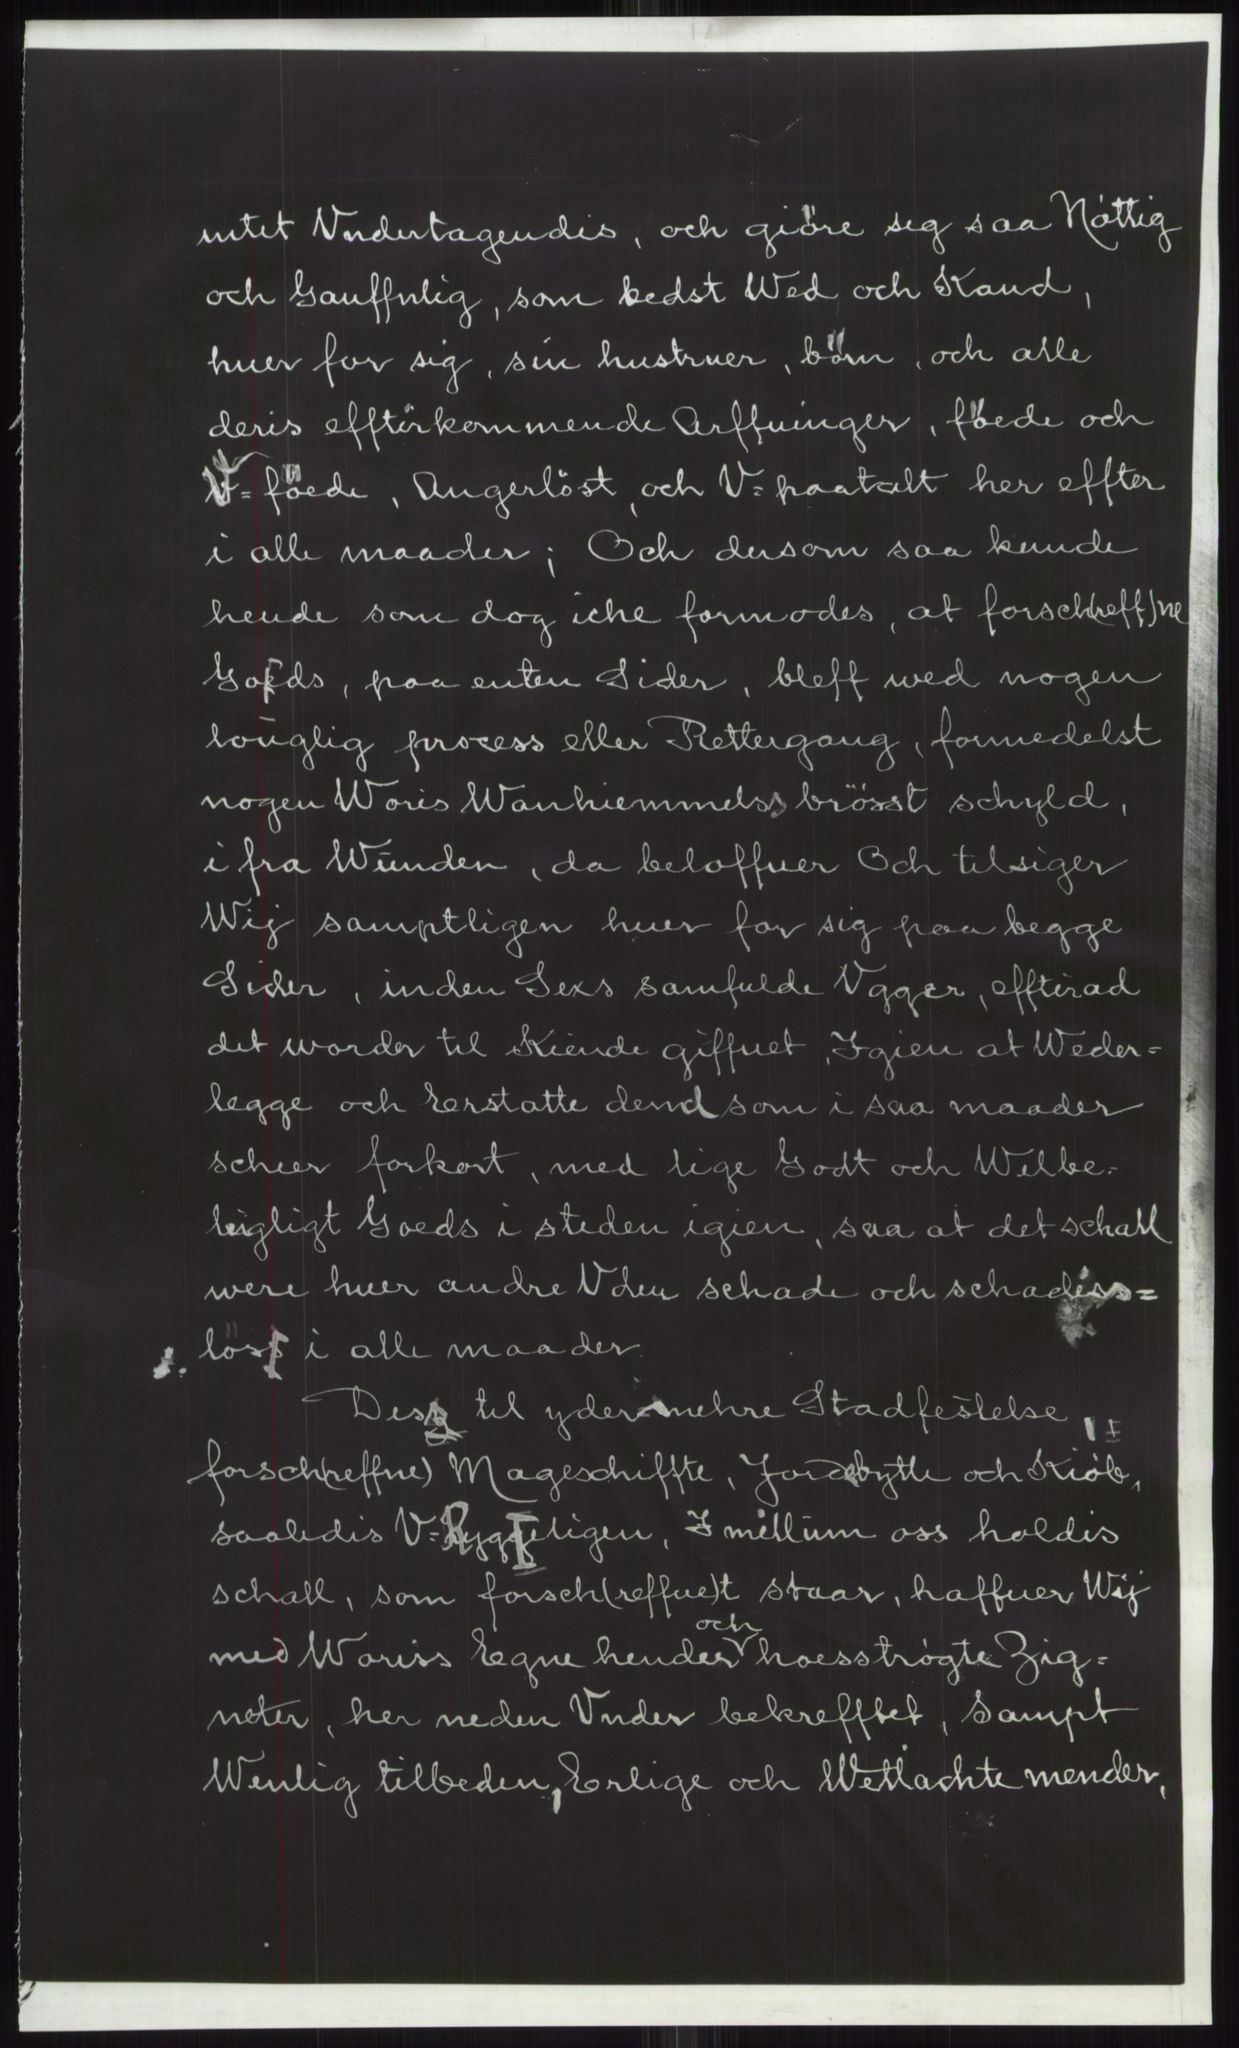 intet Vndertagendis, och giöre seg saa Nöttig
och Gauffnlig, som bedst Wed och Kand,
huer for sig, sin hustruer, börn, och alle
deris effterkommende Arffuinger, föede och
V=föede, Angerlöst, och V=paatalt her effter
i alle maader; Och dersom saa kunde
hende som dog iche formodes, at forsch(reff)ne
Goeds, paa enten Sider, bleff med nogen
louglig process eller Rettergang, formedelst
nogen Woris Wanhiemmels brösst schyld,
i fra Wunden, da beloffuer Och tilsiger
Wij samptligen huer for sig paa begge
Sider, inden Sexs samfulde Vgger, effterad
det worder til Kiende giffuet, Igien at Weder=
legge och Eerstatte dend som i saa maader
scheer forkort, med lige Godt och Welbe=
leigligt Goeds i steden igien, saa at det schall
were huer andre Vden schade och schadess=
löss i alle maader.
Dess til ydermehre Stadfestelse,
forsch(reffne) Mageschiffte, Jordebytte och Kiöb,
saaledis V=Ryggeligen, Imellum oss holdis
schall, som forsch(reffue)t staar, haffuer Wij
med Woriss Egne hender och hoesströgte Zig=
neter, her neden Vnder bekrefftet, Sampt
Wenlig tilbeden, Erlige och Wellachte mender,